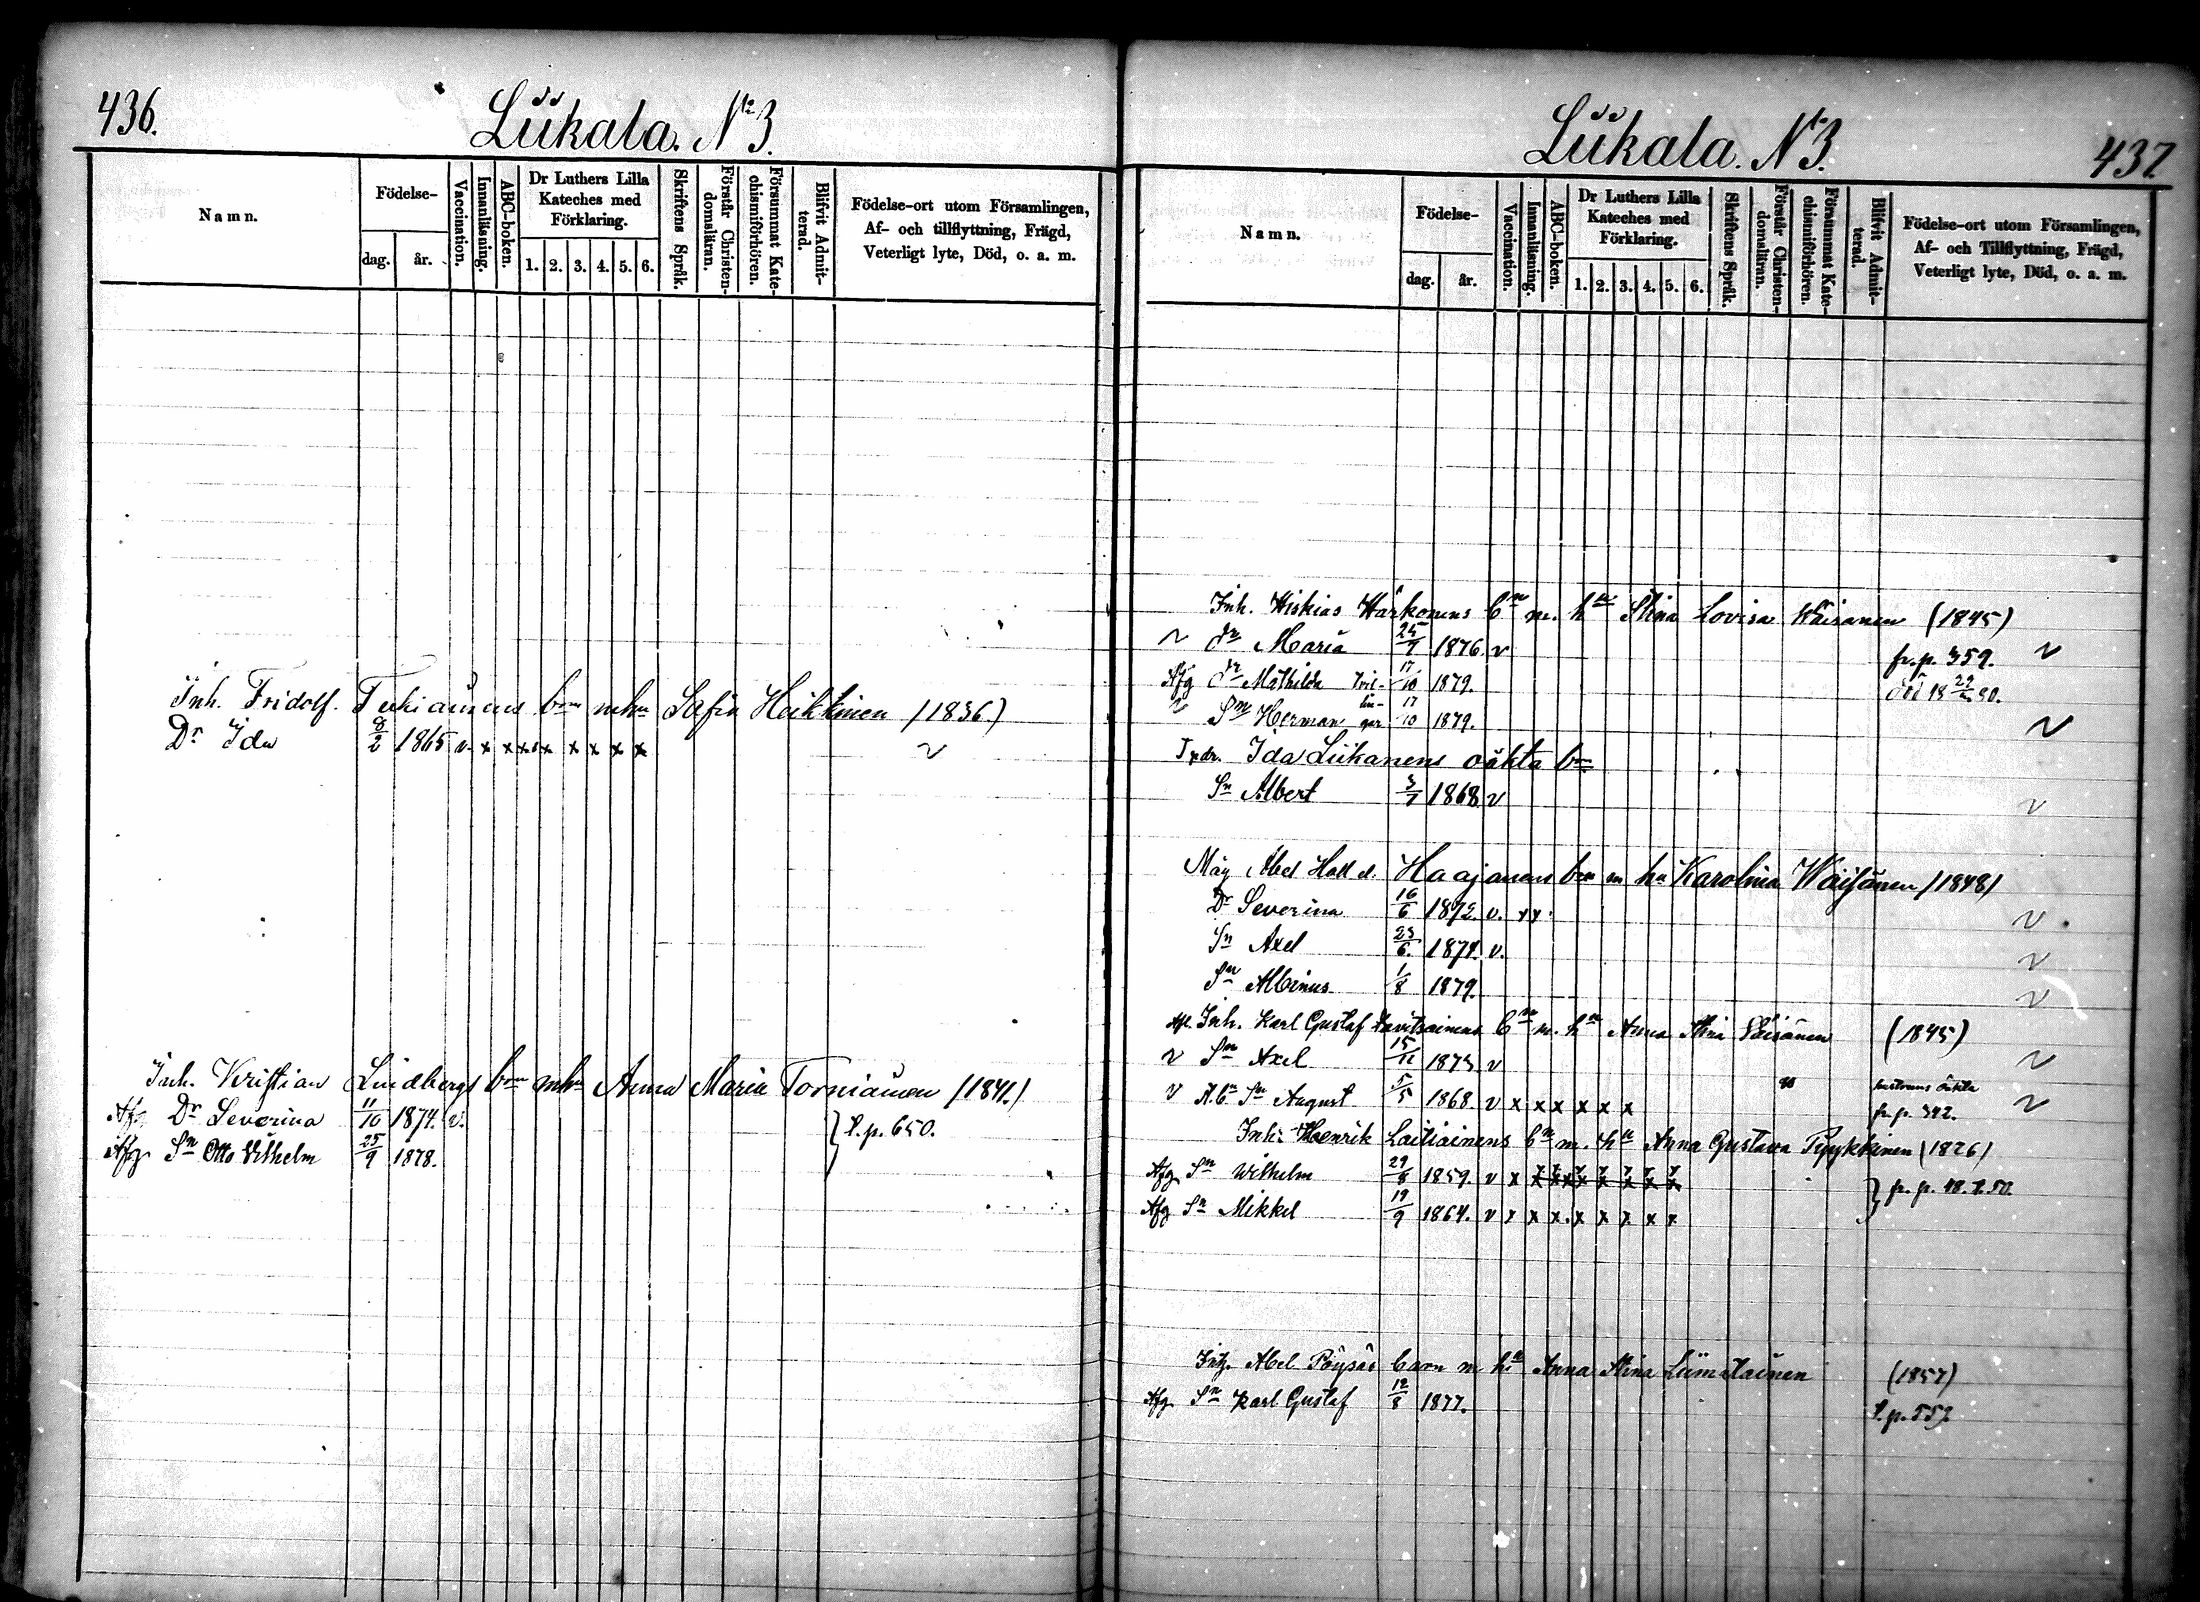 436.
Liikala. No 3.
Namn.
Födelse-
dag.
år.
Vaccination.
Innanläsning.
ABC-boken.
Dr Luthers Lilla
Kateches med
Förklaring.
1. 2. 3. 4. 5. 6.
Skriftens Språk.
Förstår Christen-
domsläran.
Försummat Kate-
chismiförhören.
Blifvit Admit-
terad.
Födelse-ort utom Församlingen,
Af- och tillflyttning, Frägd,
Veterligt lyte, Död, o. a. m.
Inh. Fridolf Heikkinen (1836)
Dr Ida 8/2 1865 v. x x x x x x x x
Inh. Kristian Lindbergs bn mhn Anna Maria Torniainen (1841.)
Afg. Dr Severina 11/10 1874. v.
} l. p. 650.
Afg. Sn Otto Vilhelm 25/9 1878.
Liikala. N 3.
437
Namn.
Födelse-
dag.
år.
Vaccination.
Innanläsning.
ABC-boken.
Dr Luthers Lilla
Kateches med
Förklaring.
1. 2. 3. 4. 5. 6.
Skriftens Språk.
Förstår Christen-
domsläran.
Försummat Kate-
chismiförhören.
Blifvit Admit-
terad.
Födelse-ort utom Församlingen,
Af- och Tillflyttning, Frägd,
Veterligt lyte, Död, o. a. m.
Inh. Hiskias Härkönens bn m. hn Stina Lovisa Väisänen (1845)
v dr Maria 25/9 1876. v fr. p. 359. v
Afg dr Mathilda Tvil- 17/10 1879. död 18 29/5 80.
v Sn Herman lin-gar 17/10 1879. v
Ida Liikanens oäkta bn
Sn Albert 3/7 1868 v v
Abel Haajanens bn m hn Karolina Wäisänen (1848)
Dr Severina 16/6 1872. v. x x v
Sn Axel 23/6 1874. v. v
Sn Albinus 1/8 1879. v
Inh. Karl Gustaf bn m. hn Anna Stina Väisänen (1845)
v Sn Axel 15/11 1873 v v
v Sn August 5/5 1868. v x x x x x x oäkta fr. p. 392. v
Inh. Henrik Laitiainens bn m. hn Anna Gustava Pyykkinen (1826)
Afg Sn Wilhelm 29/8 1859. v x x x x x x x x
} fr. p.
Afg Sn Mikkel 19/9 1864. v x x x x x x x x
Abel Pöysäs barn m hn Anna Stina Liimatainen (1857)
Afg Sn Karl Gustaf 12/8 1877. l. p. 557